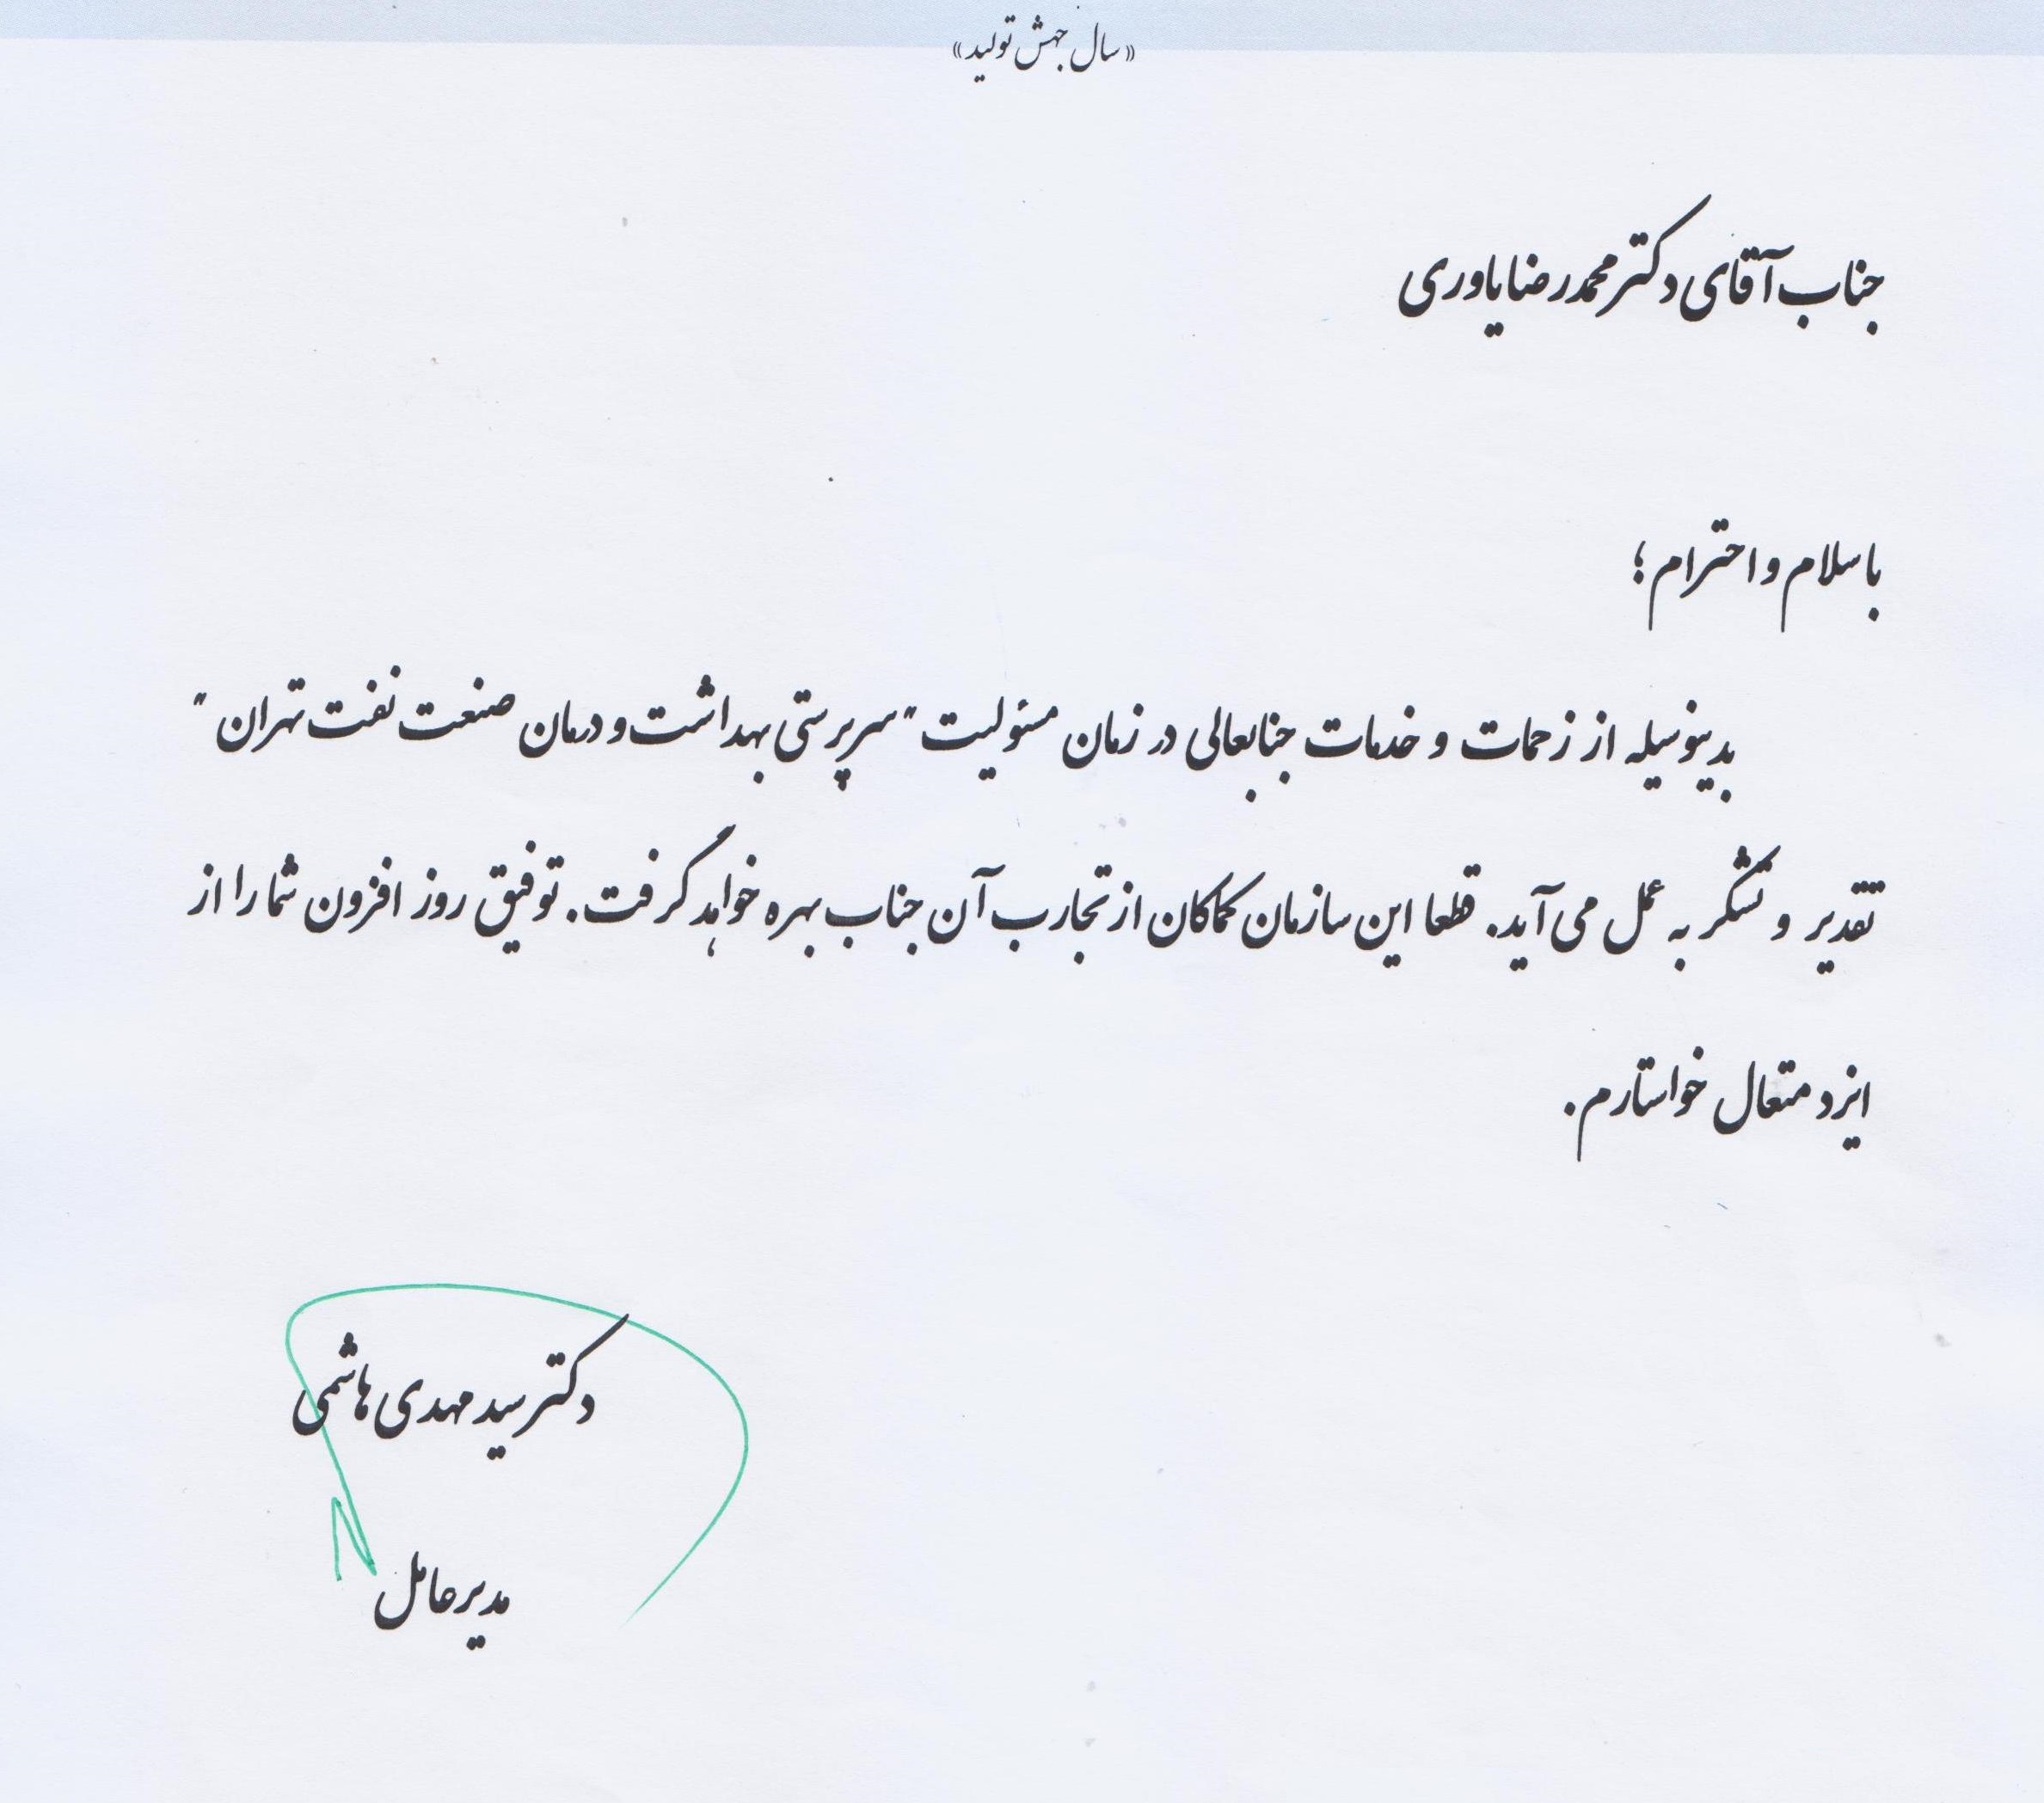 «سال جهش تولید»
جناب آقای دکتر محمدرضا یاوری
با سلام و احترام؛
بدینوسیله از زحمات و خدمات جنابعالی در زمان مسئولیت "سرپرستی بهداشت و درمان صنعت نفت تهران"
تقدیر و تشکر به عمل می آید. قطعا این سازمان کماکان از تجارب آن جناب بهره خواهد گرفت. توفیق روز افزون شما را از
ایزد متعال خواستارم.
دکتر سید مهدی هاشمی
مدیرعامل